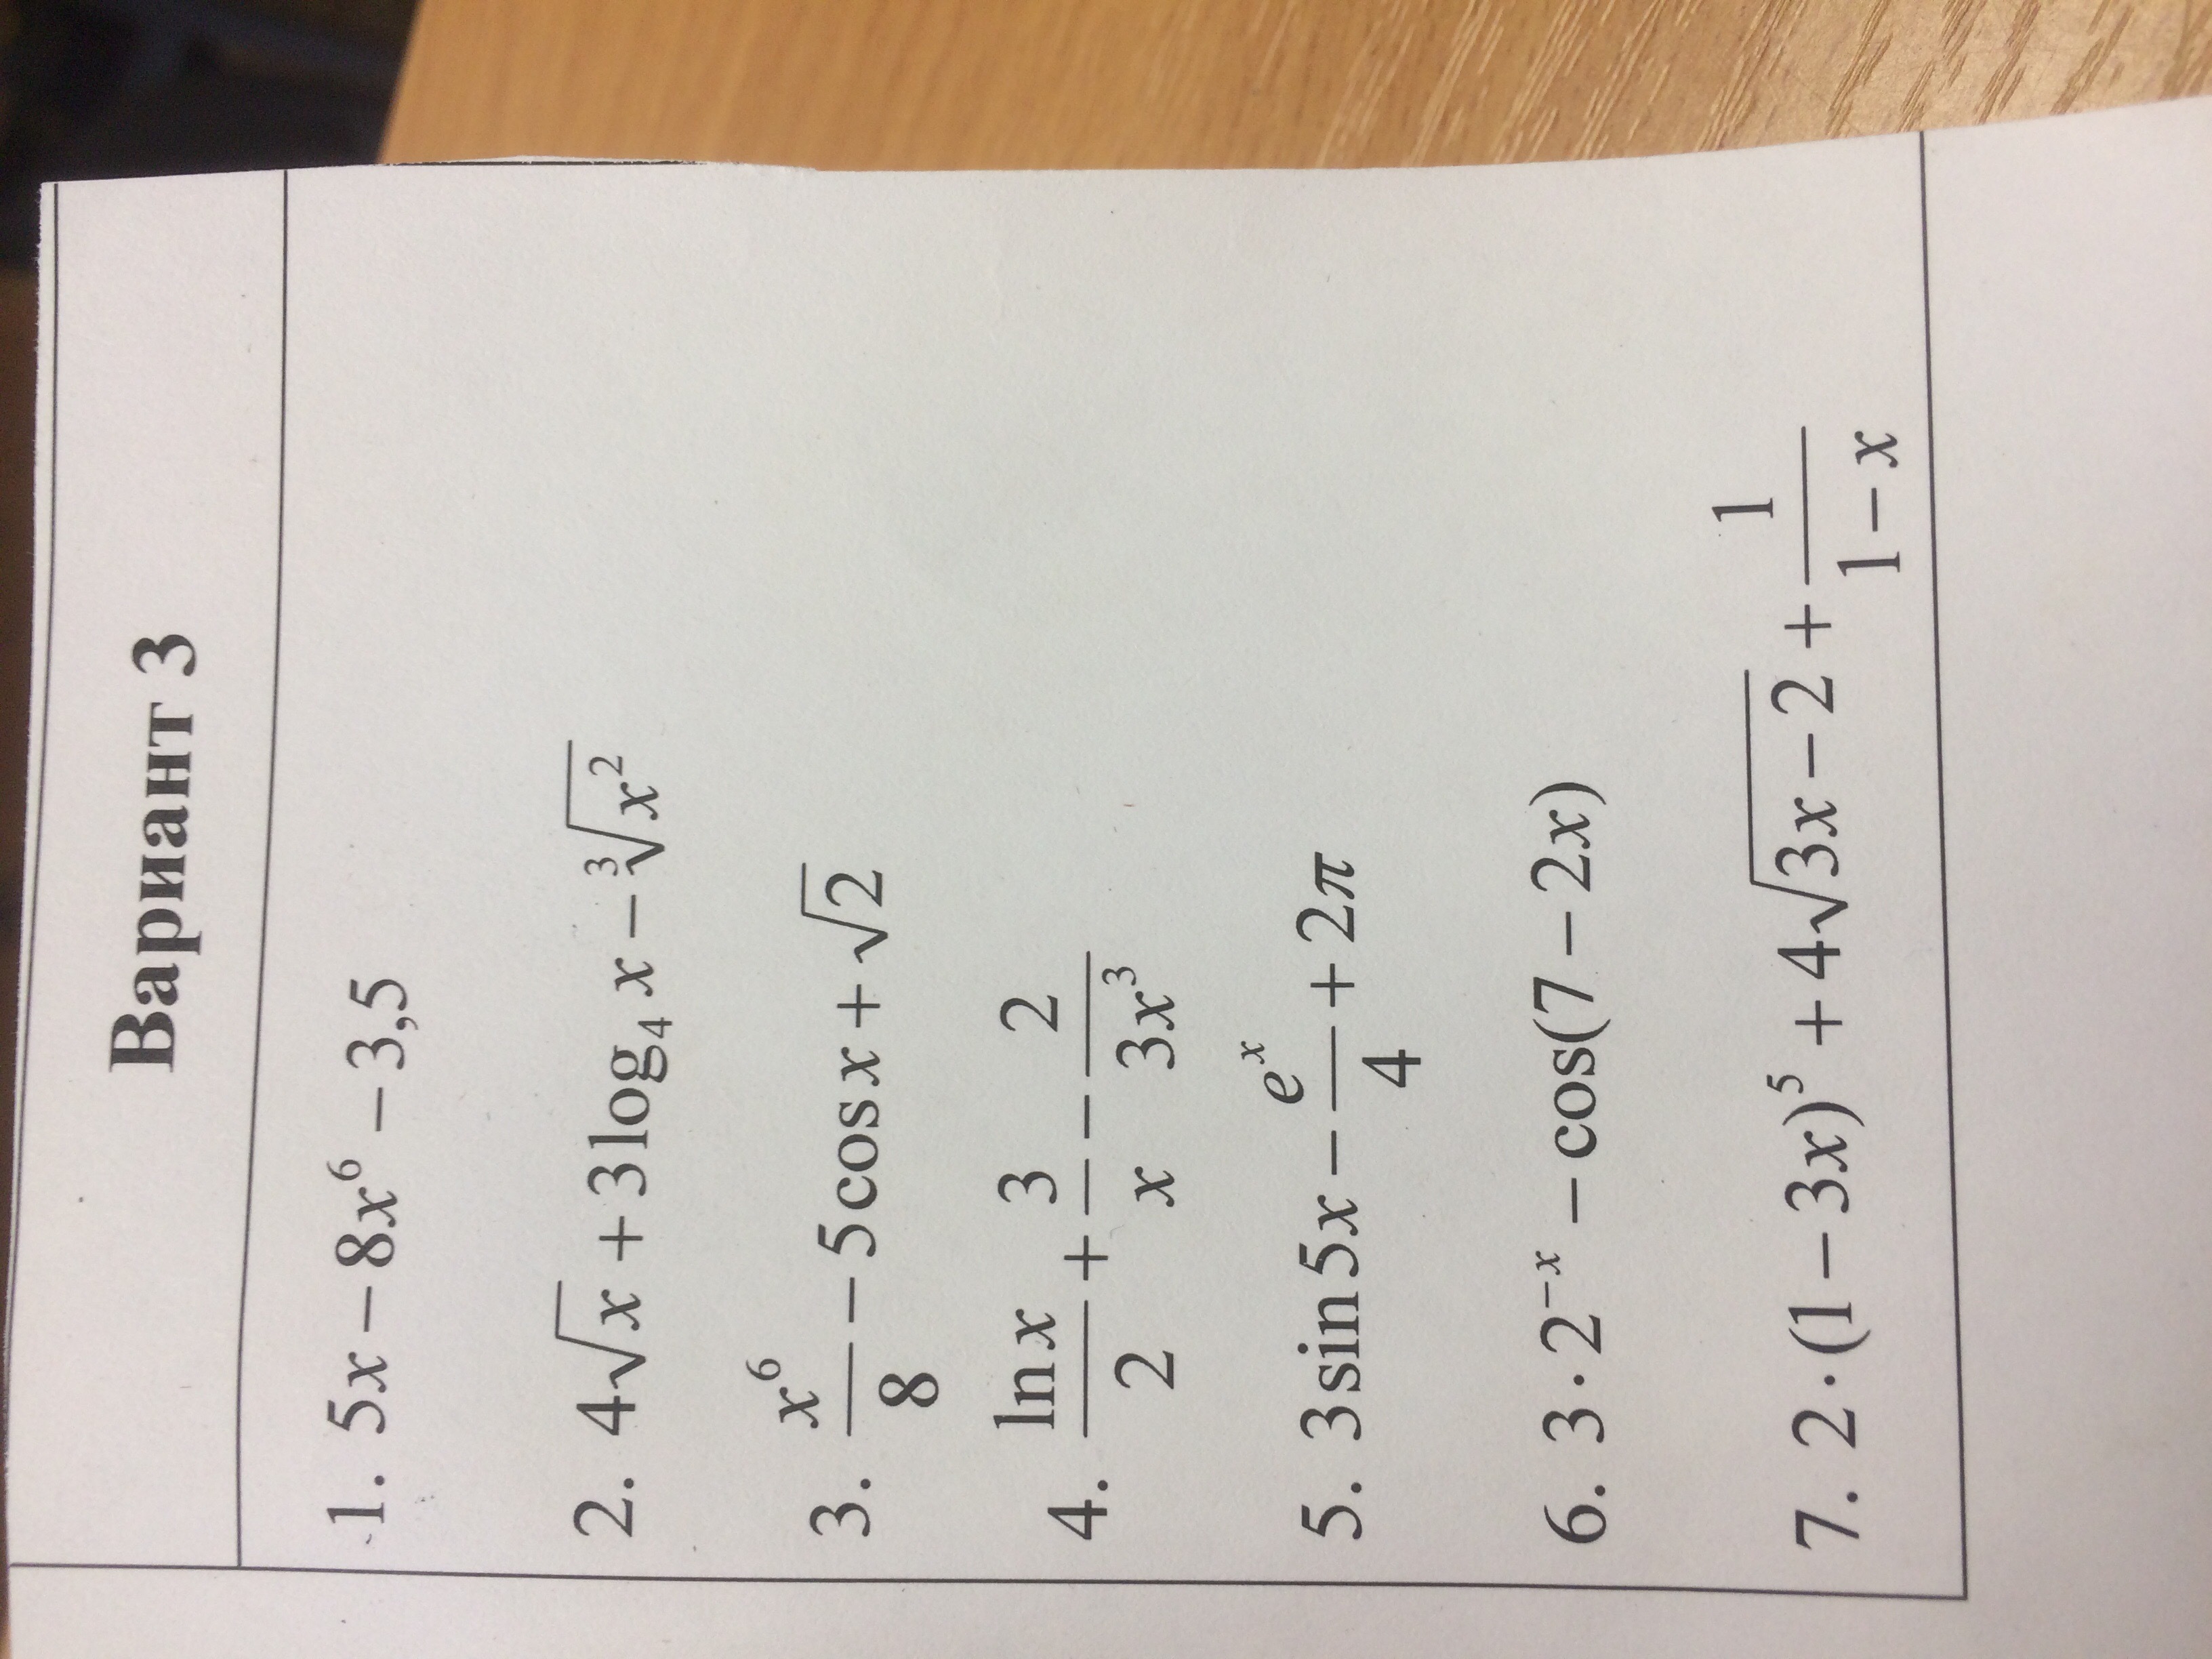 Вариант 3
1. 5x − 8x⁶ − 3,5
2. 4√x + 3log₄ x − ∛x²
3. x⁶/8 − 5cos x + √2
4. ln x/2 + 3/x − 2/3x³
5. 3sin5x − eˣ/4 + 2π
6. 3·2⁻ˣ − cos(7 − 2x)
7. 2·(1 − 3x)⁵ + 4√(3x − 2) + 1/(1 − x)